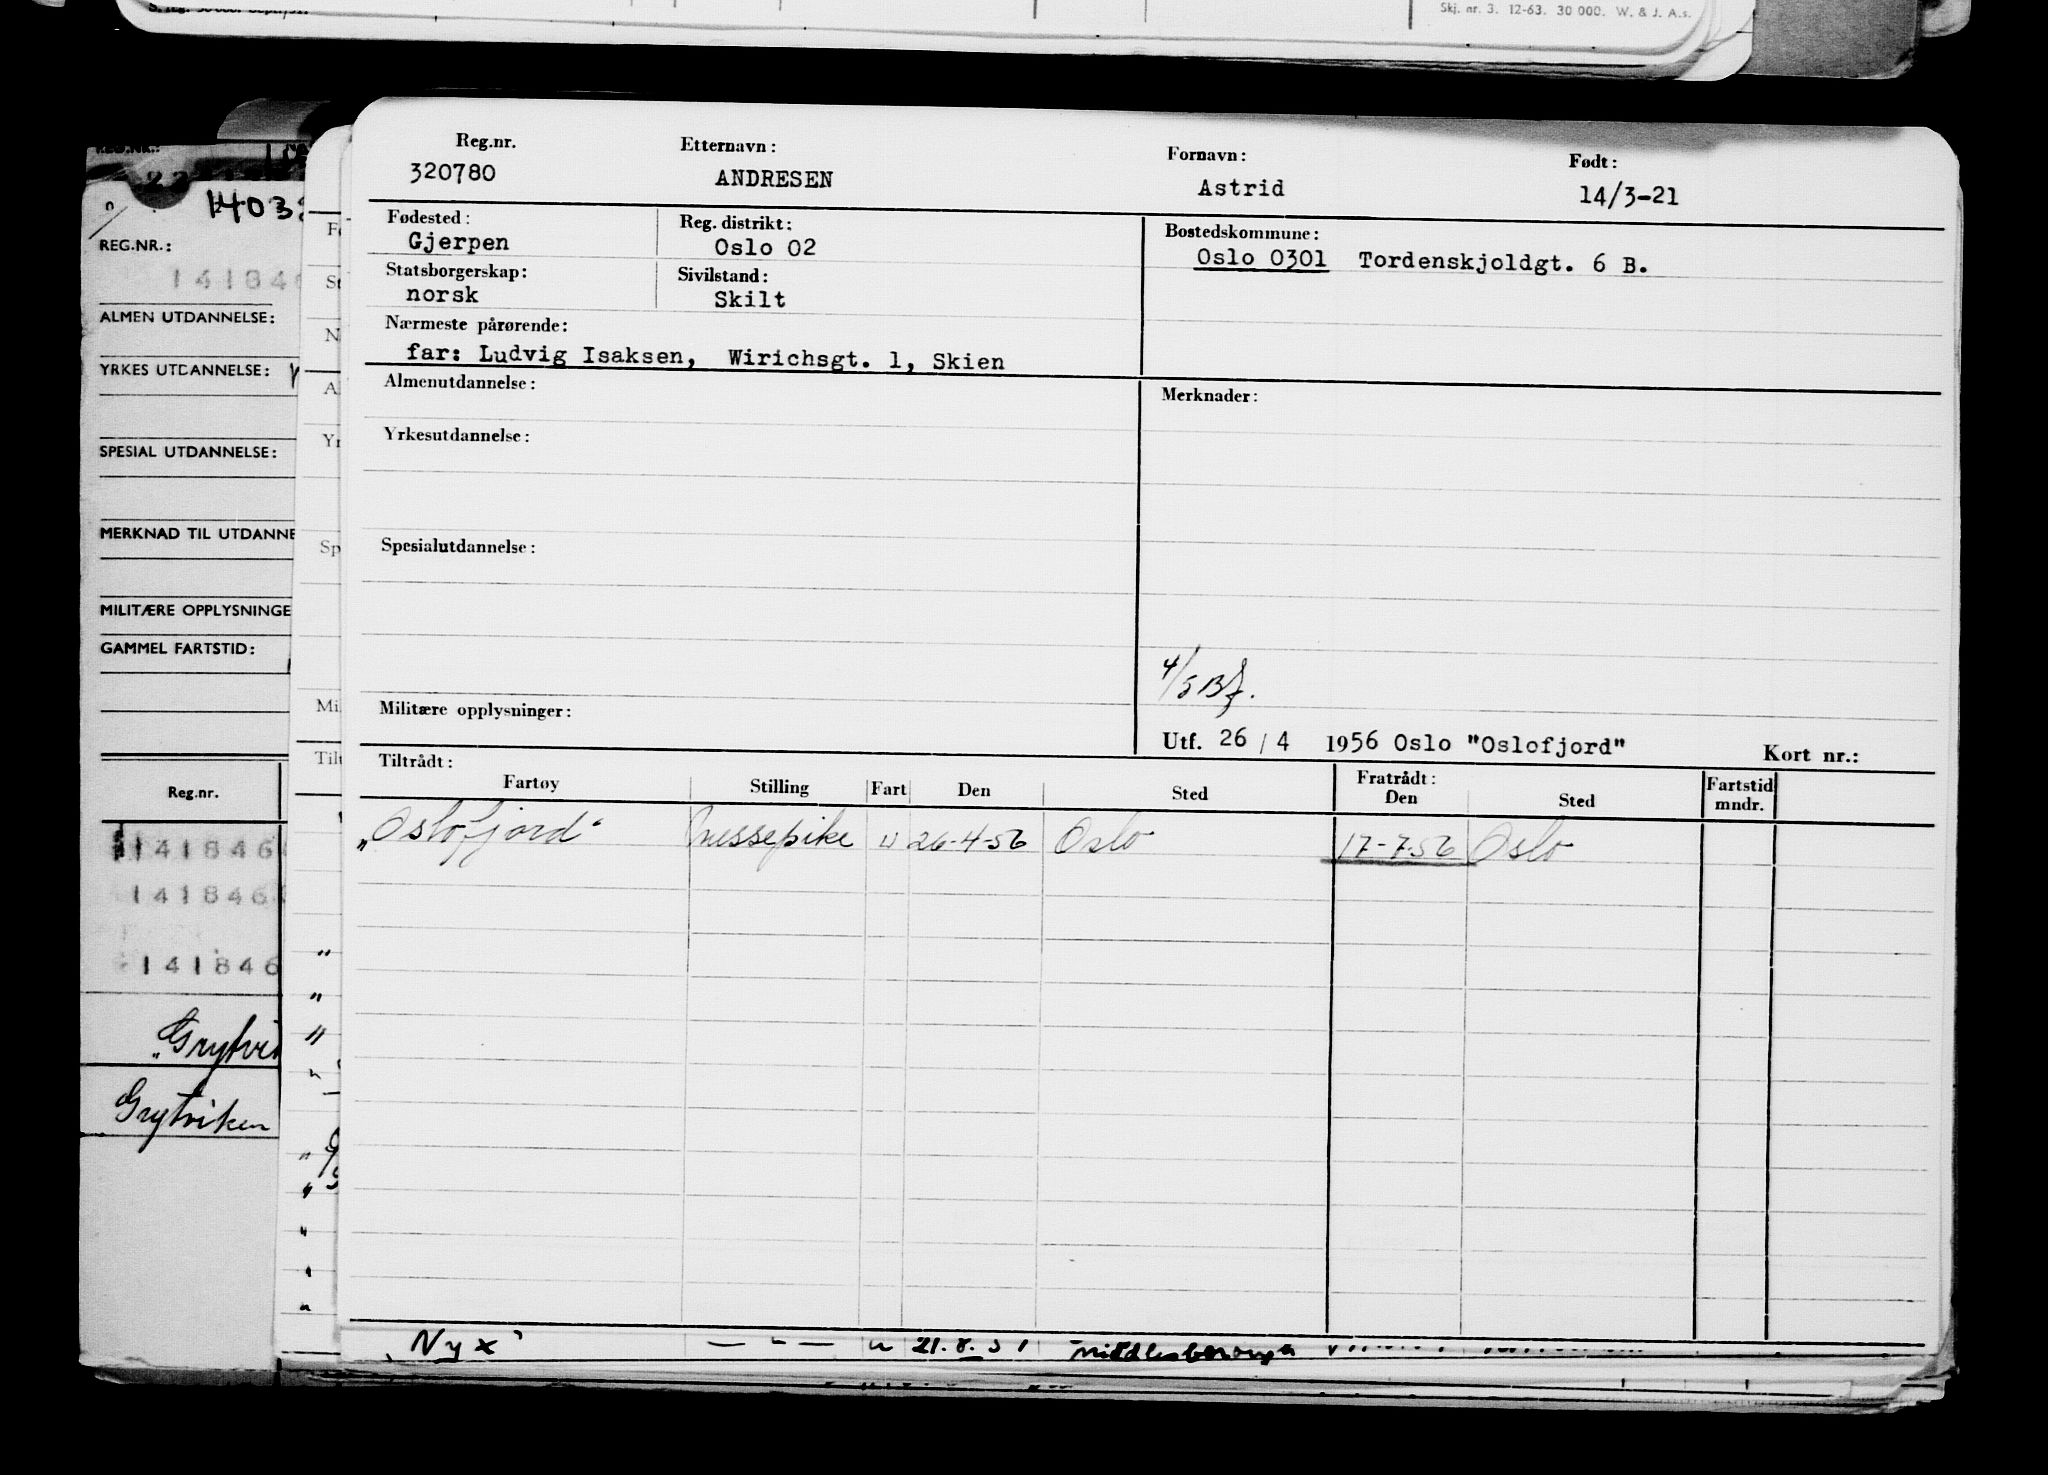 Skj. nr. 3. 12-63. 30 000. W. & J. A.s.
REG.NR.:
14184
ALMEN UTDANNELSE:
YRKES UTDANNELSE:
SPESIAL UTDANNELSE:
MERKNAD TIL UTDANNE
MILITÆRE OPPLYSNINGE
GAMMEL FARTSTID:
Reg.nr.
141846
141846
141846
Grytvi
Grytviken
Reg.nr. Etternavn: Fornavn: Født:
320780 ANDRESEN Astrid 14/3-21
Fødested: Reg. distrikt: Bostedskommune:
Gjerpen Oslo 02 Oslo 0301 Tordenskjoldgt. 6 B.
Statsborgerskap: Sivilstand:
norsk Skilt
Nærmeste pårørende:
far: Ludvig Isaksen, Wirichsgt. 1, Skien
Almenutdannelse: Merknader:
Yrkesutdannelse:
Spesialutdannelse:
4/5
Militære opplysninger:
Utf. 26 / 4 1956 Oslo "Oslofjord" Kort nr.:
Tiltrådt: Fratrådt: Fartstid
Fartøy Stilling Fart Den Sted Den Sted mndr.
"Oslofjord" Messepike u 26-4-56 Oslo 17-7-56 Oslo
Nyx" — " — u 21.8.51 Middlesborough